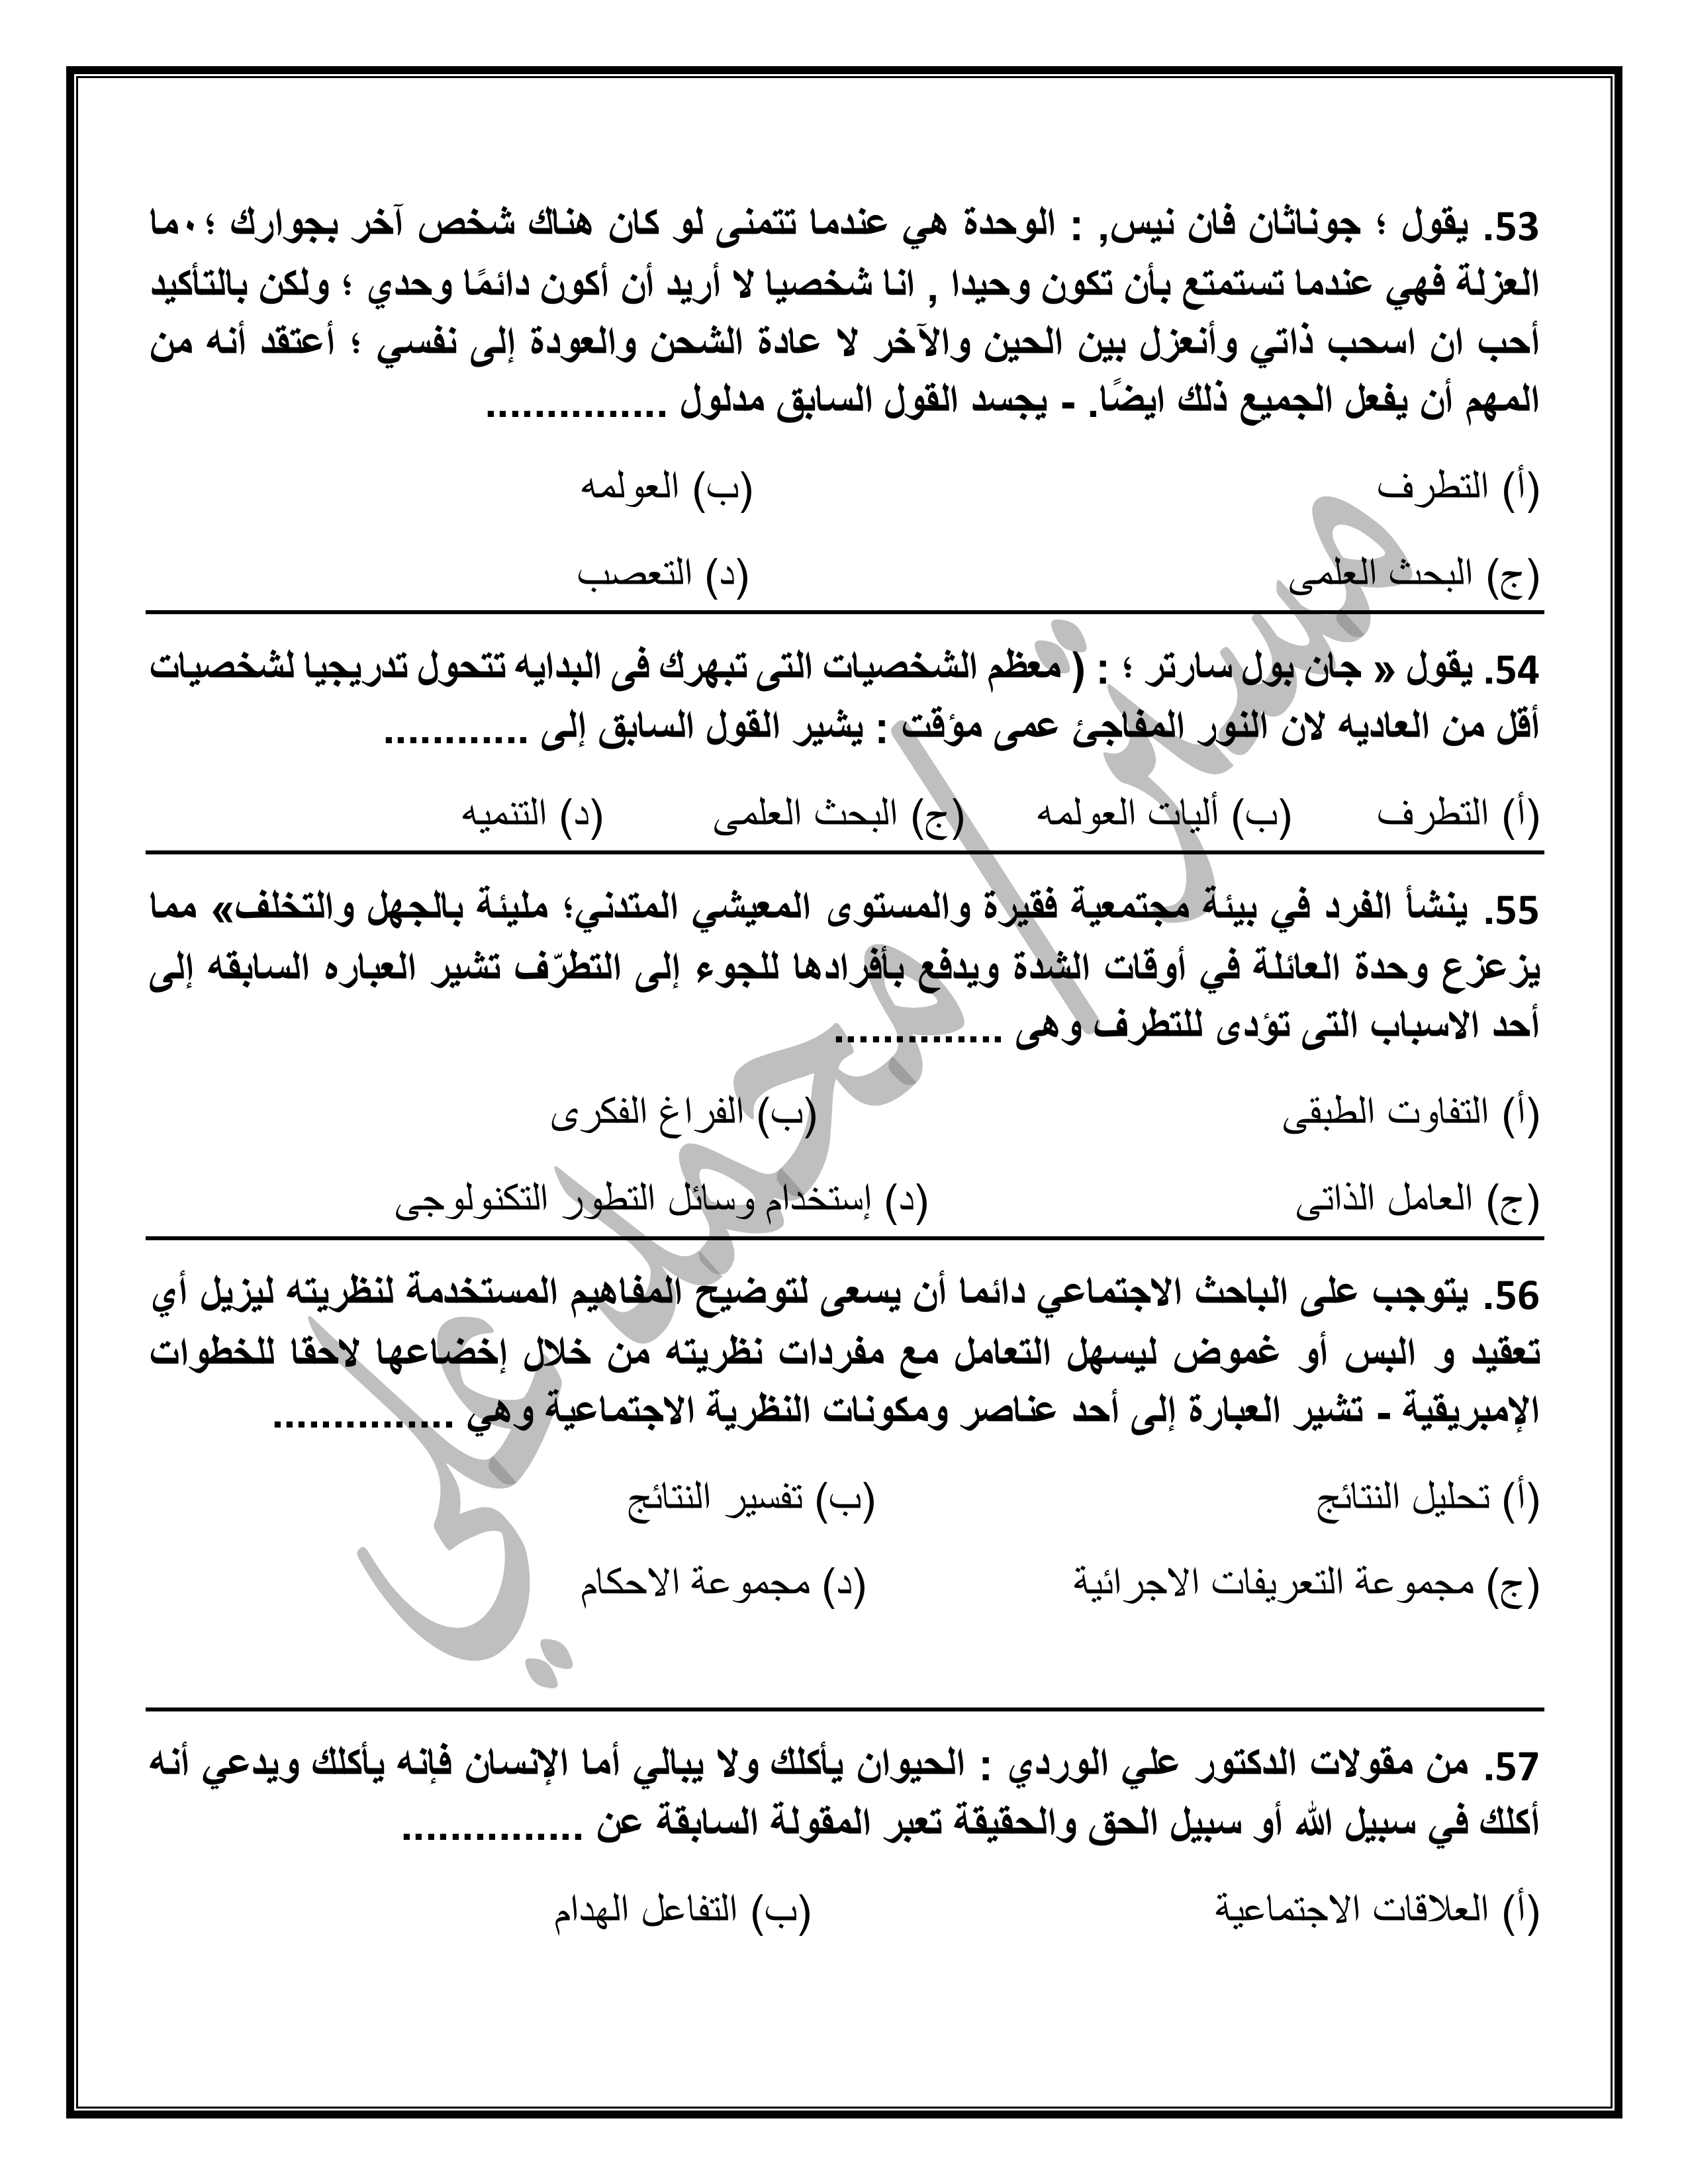 53. يقول ؛ جوناثان فان نيس, : الوحدة هي عندما تتمنى لو كان هناك شخص آخر بجوارك ؛٠ما
العزلة فهي عندما تستمتع بأن تكون وحيدا , انا شخصيا لا أريد أن أكون دائمًا وحدي ؛ ولكن بالتأكيد
أحب ان اسحب ذاتي وأنعزل بين الحين والآخر لا عادة الشحن والعودة إلى نفسي ؛ أعتقد أنه من
المهم أن يفعل الجميع ذلك ايضًا. - يجسد القول السابق مدلول ...............
(أ) التطرف (ب) العولمه
(ج) البحث العلمى (د) التعصب
54. يقول « جان بول سارتر ؛ : ( معظم الشخصيات التى تبهرك فى البدايه تتحول تدريجيا لشخصيات
أقل من العاديه لان النور المفاجئ عمى مؤقت : يشير القول السابق إلى ............
(أ) التطرف (ب) ألیات العولمه (ج) البحث العلمى (د) التنميه
55. ينشأ الفرد في بيئة مجتمعية فقيرة والمستوى المعيشي المتدني؛ مليئة بالجهل والتخلف» مما
يزعزع وحدة العائلة في أوقات الشدة ويدفع بأفرادها للجوء إلى التطرّف تشير العباره السابقه إلى
أحد الاسباب التى تؤدى للتطرف وهى ..............
(أ) التفاوت الطبقى (ب) الفراغ الفكرى
(ج) العامل الذاتى (د) إستخدام وسائل التطور التكنولوجى
56. يتوجب على الباحث الاجتماعي دائما أن يسعى لتوضيح المفاهيم المستخدمة لنظريته ليزيل أي
تعقيد و البس أو غموض ليسهل التعامل مع مفردات نظريته من خلال إخضاعها لاحقا للخطوات
الإمبريقية - تشير العبارة إلى أحد عناصر ومكونات النظرية الاجتماعية وهي ...............
(أ) تحليل النتائج (ب) تفسير النتائج
(ج) مجموعة التعريفات الاجرائية (د) مجموعة الاحكام
57. من مقولات الدكتور علي الوردي : الحيوان يأكلك ولا يبالي أما الإنسان فإنه يأكلك ويدعي أنه
أكلك في سبيل الله أو سبيل الحق والحقيقة تعبر المقولة السابقة عن ...............
(أ) العلاقات الاجتماعية (ب) التفاعل الهدام
مستر/محمد علي